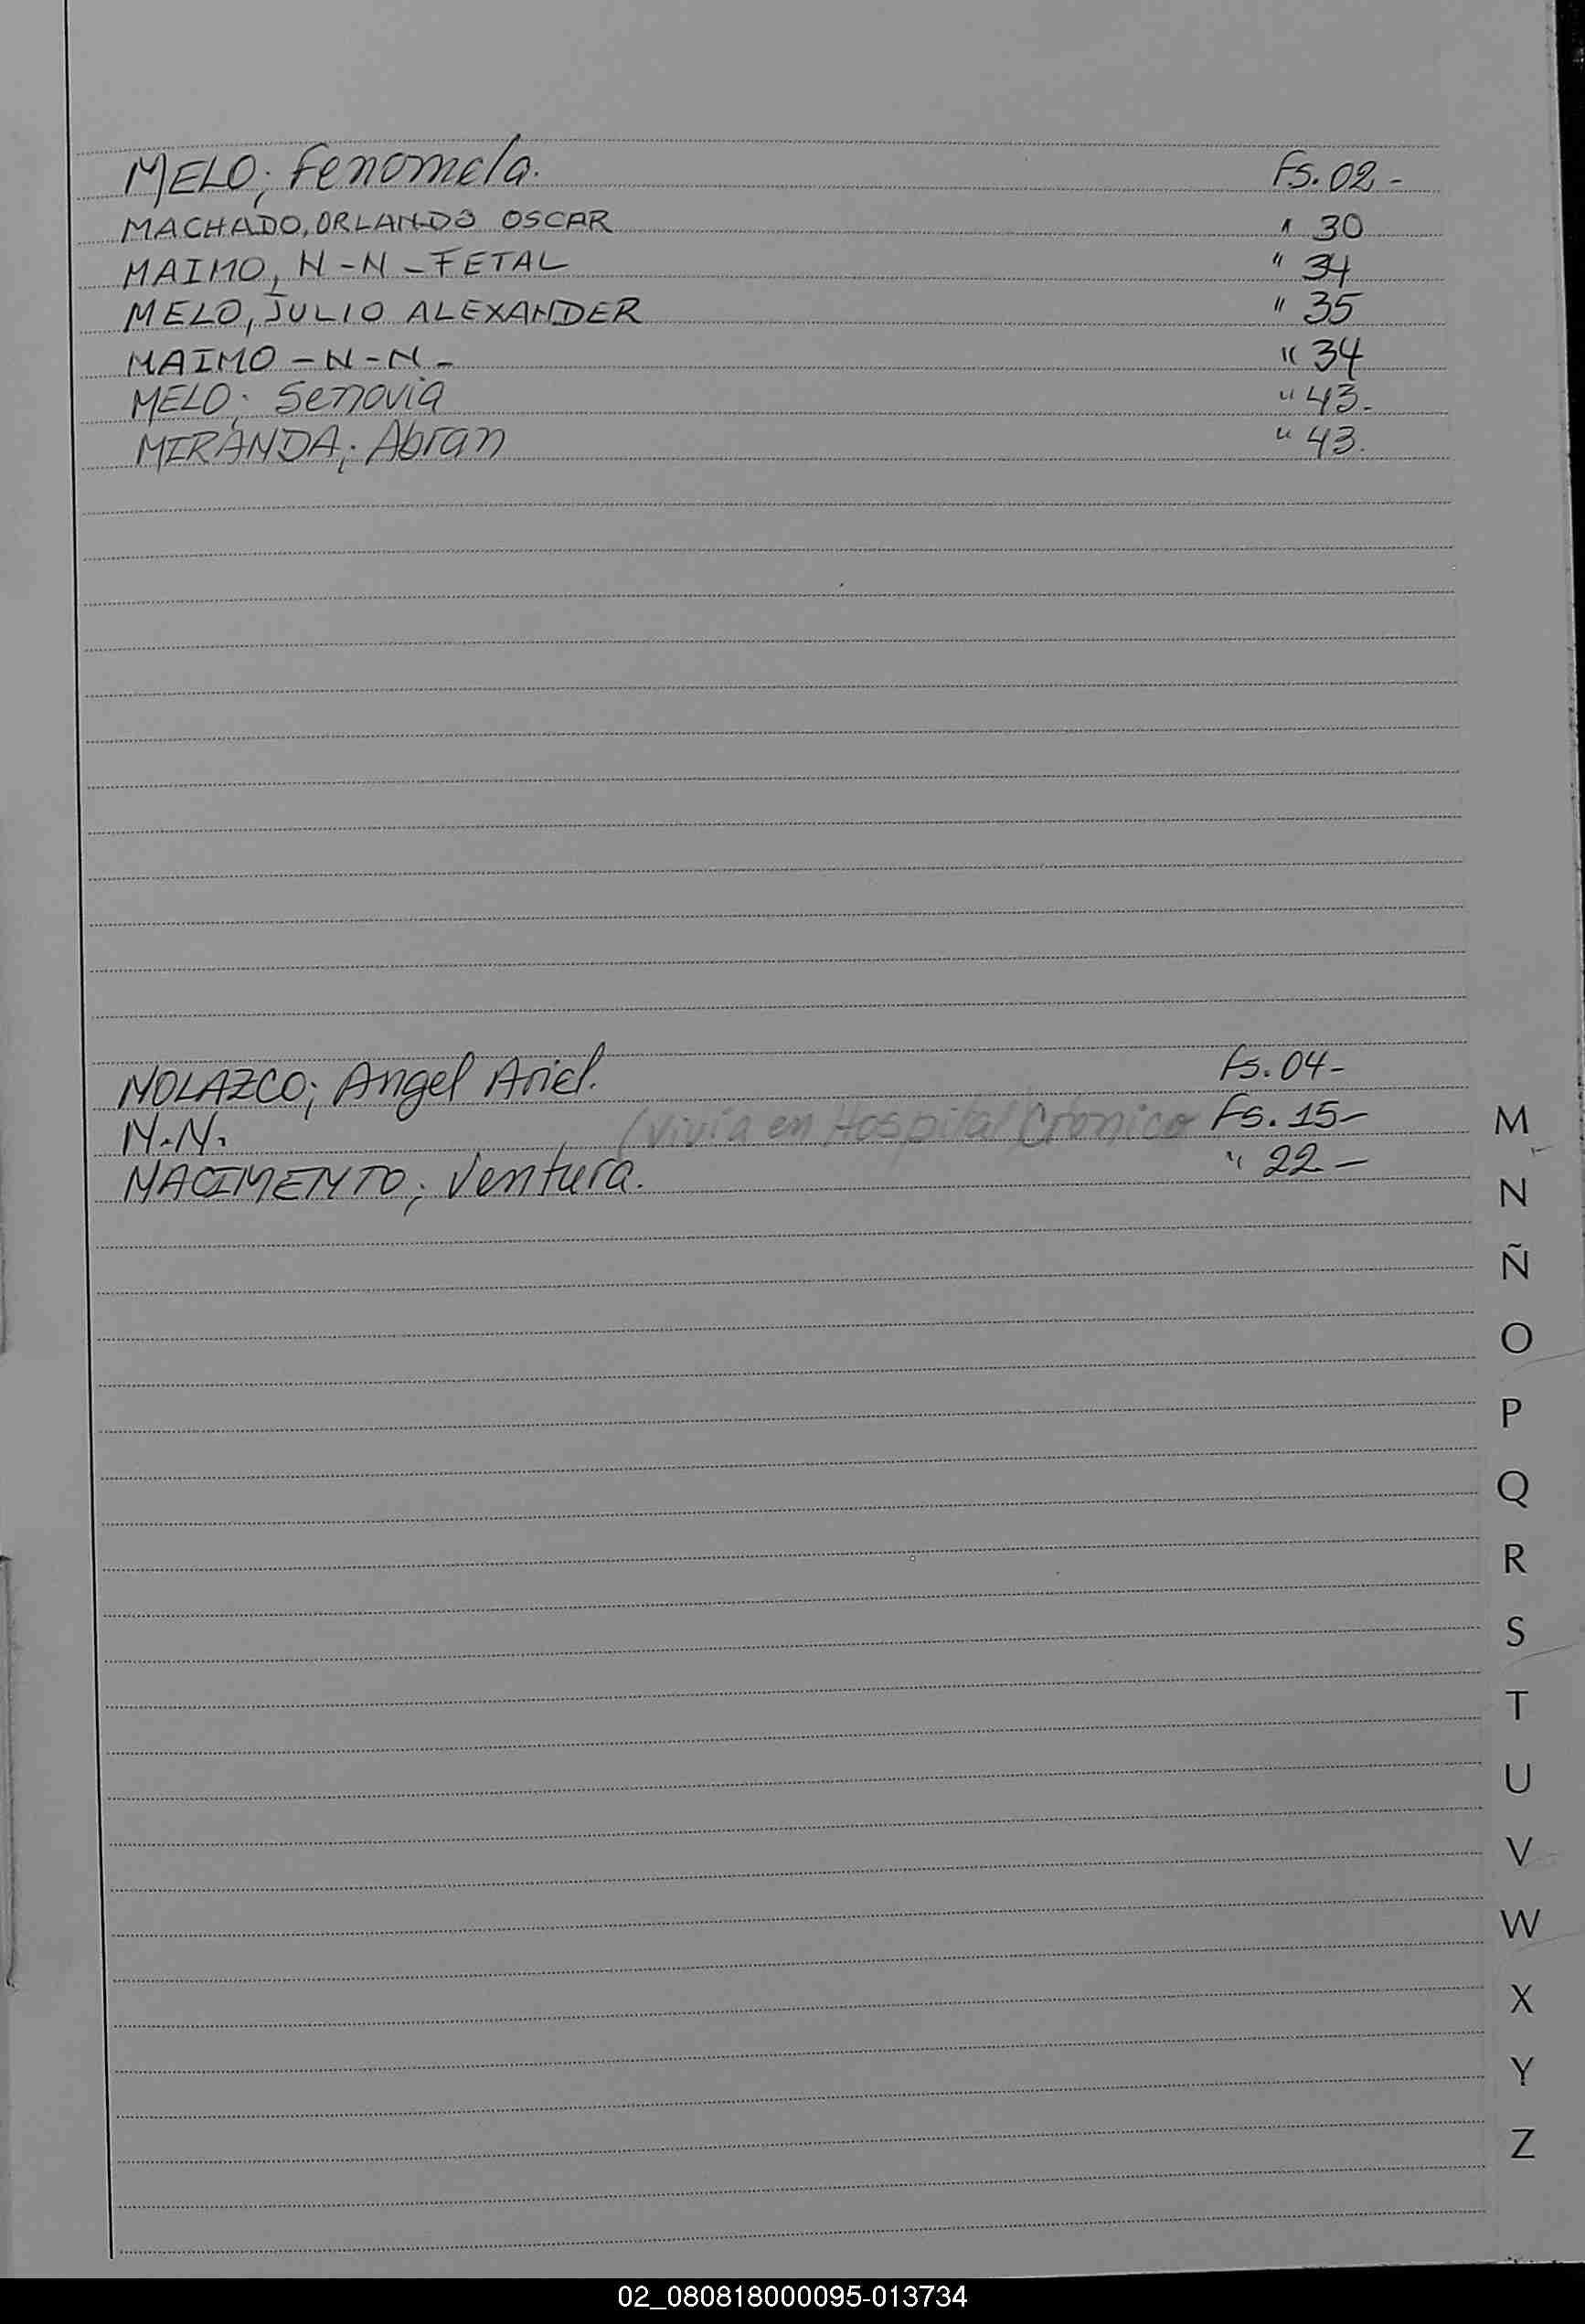 MELO; Fenomela. Fs. 02-
MACHADO, ORLANDO OSCAR " 30
MAIMO, N-N-FETAL " 34
MELO, JULIO ALEXANDER " 35
MAIMO-N-N- " 34
MELO; Senovia " 43-
MIRANDA; Abran " 43.
NOLAZCO; Angel Ariel. Fs. 04-
N.N. (vivía en Hospital Crónico Fs. 15-
NACIMENTO; Ventura. " 22-
M
N
Ñ
O
P
Q
R
S
T
U
V
W
X
Y
Z
02_080818000095-013734